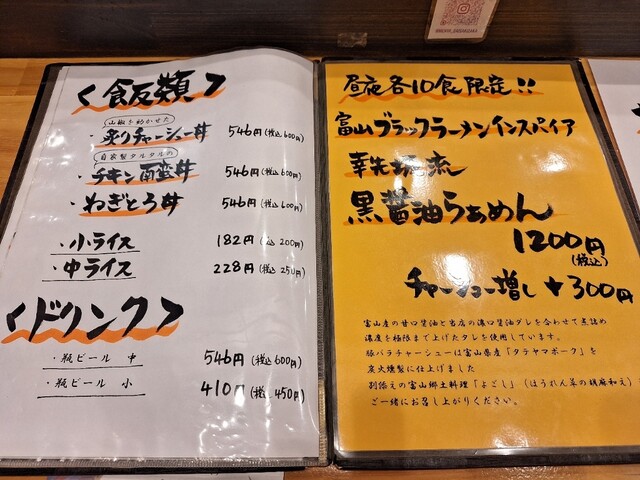 ＜飯類＞
山椒を効かせた
・炙りチャーシュー丼 546円(税込600円)
自家製タルタルの
・チキン南蛮丼 546円(税込600円)
・ねぎとろ丼 546円(税込600円)
・小ライス 182円(税込200円)
・中ライス 228円(税込250円)
＜ドリンク＞
・瓶ビール 中 546円(税込600円)
・瓶ビール 小 410円(税込450円)
昼夜各10食限定!!
富山ブラックラーメンインスパイア
幸先坂流
黒醤油らぁめん
1200円
(税込)
チャーシュー増し +300円
富山産の甘口醤油と当店の濃口醤油ダレを合わせて煮詰め
濃度を極限まで上げたタレを使用しています。
豚バラチャーシューは富山県産「タテヤマポーク」を
炭火燻製に仕上げました
別添えの富山郷土料理「よごし」(ほうれん草の胡麻和え)
ご一緒にお召し上がりください。